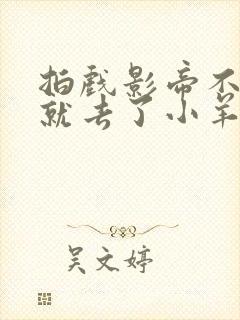 拍戏影帝不
就去了小羊
吴文婷